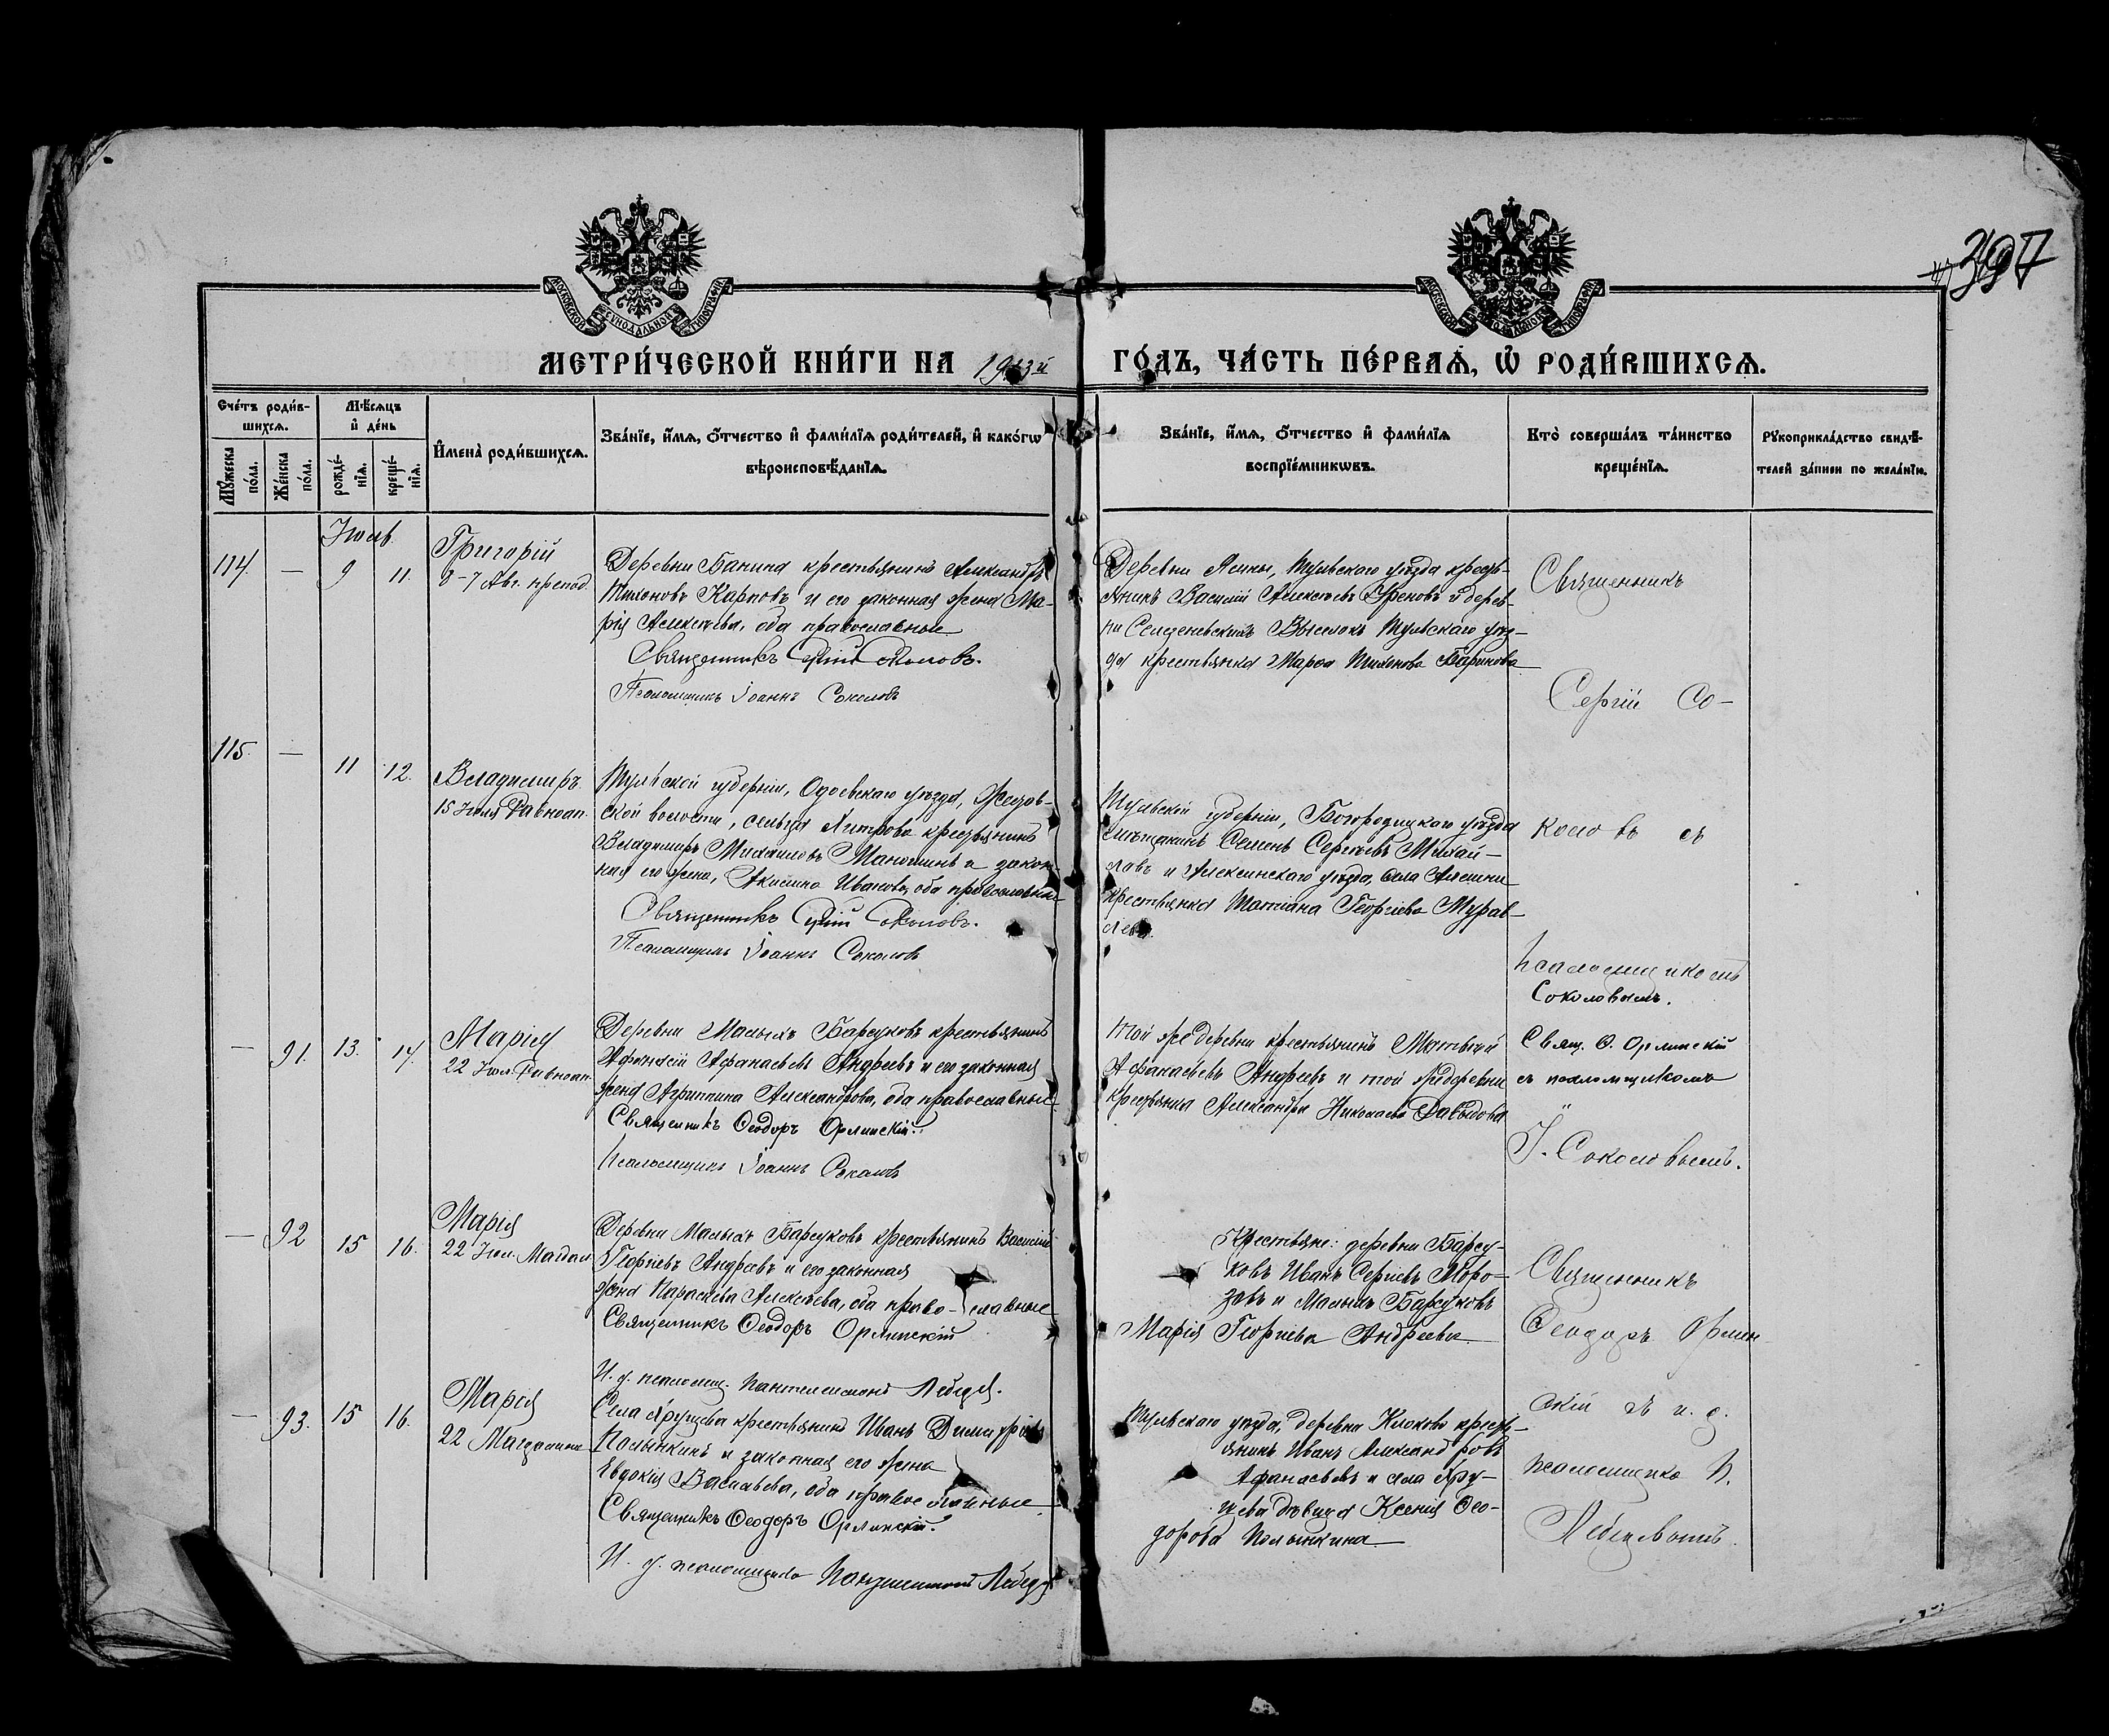 397
МОСКОВСКОЙ СѴНОДАЛЬНОЙ ТИПОГРАФІИ
МОСКОВСКОЙ СѴНОДАЛЬНОЙ ТИПОГРАФІИ
МЕТРИ́ЧЕСКОЙ КНИ́ГИ НА 1913й ГО́ДЪ, ЧА́СТЬ ПЕ́РВАѦ, Ѡ҆ РОДИ́ВШИХСѦ.
Сче́тъ роди́в-
шихсѧ.
Мѣ́сѧцъ
и҆ де́нь
Мꙋ́жеска
по́ла.
Же́нска
по́ла.
рожде́-
нїѧ.
креще́-
нїѧ.
И҆мена̀ роди́вшихсѧ.
Зва́нїе, и҆́мѧ, ѻ҆́тчество и҆ фами́лїѧ роди́телей, и҆ како́гѡ
вѣроисповѣ́данїѧ.
Зва́нїе, и҆́мѧ, ѻ҆́тчество и҆ фами́лїѧ
воспрїе́мникѡвъ.
Кто̀ соверша́лъ та́инство
креще́нїѧ.
Рꙋкоприкла́дство свидѣ́-
телей за́писи по жела́нїю.
Іюль
114. — 9 11.
Григорій
8-7 Авг. препод.
Деревни Банина крестьянинъ Александръ
Тихоновъ Карповъ и его законная жена Ма-
рія Алексѣева, оба православные
Священникъ Сергій Соколовъ.
Псаломщикъ Іоаннъ Соколовъ
Деревни Ясины, Тульскаго уѣзда кресть-
янинъ Василій Алексѣевъ и дерев-
ни Выселокъ Тульскаго уѣз-
да крестьянка Марѳа Тихонова Баринова
Священникъ
Сергій Со-
115. — 11 12.
Владиміръ
15 Іюля Равноап.
Тульской губерніи, Одоевскаго уѣзда,
ской волости, сельца крестьянинъ
Владиміръ Михаиловъ Манохинъ и закон-
ная его жена, Акилина Иванова, оба православные
Священникъ Сергій Соколовъ.
Псаломщикъ Іоаннъ Соколовъ
Тульской губерніи, Богородицкаго уѣзда
мѣщанинъ Семенъ Сергѣевъ Михай-
ловъ и Алексинскаго уѣзда, села Алешни
крестьянка Татіана Георгіева Мурав-
лева.
коловъ съ
псаломщикомъ
Соколовымъ.
— 91. 13. 14.
Марія
22 Іюл. Равноап.
Деревни Малыхъ Барсуковъ крестьянинъ
Афанасій Афанасьевъ Андреевъ и его законная
жена Агриппина Александрова, оба православные
Священникъ Ѳеодоръ Орлинскій.
Псаломщикъ Іоаннъ Соколовъ
Той же деревни крестьянинъ Матвѣй
Афанасьевъ Андреевъ и той же деревни
крестьянка Александра Николаева Давыдова
Свящ. Ѳ. Орлинскій
съ псаломщикомъ
І. Соколовымъ.
— 92 15 16.
Марія
22 Іюл. Магдал
Деревни Малыхъ Барсуковъ крестьянинъ Василій
Георгіевъ Андреевъ и его законная
жена Параскева Алексѣева, оба право-славные
Священникъ Ѳеодоръ Орлинскій
И. д. псаломщ. Пантелеимонъ Лебедевъ.
Крестьяне: деревни Барсу-
ковъ Иванъ Сергѣевъ Моро-
зовъ и Малыхъ Барсуковъ
Марія Георгіева Андреева
Священникъ
Ѳеодоръ Орлин-
— 93. 15 16.
Марія
22 Магдалины
Села Хрущева крестьянинъ Иванъ Димитріевъ
Полынкинъ и законная его жена
Евдокія Васильева, оба православные
Священникъ Ѳеодоръ Орлинскій.
И. д. псаломщика Пантелеимонъ Лебедевъ
Тульскаго уѣзда, деревни Клокова кресть-
янинъ Иванъ Александровъ
Афанасьевъ и села Хру-
щева дѣвица Ксенія Ѳео-
дорова Полынкина
скій съ и. д.
псаломщика П.
Лебедевымъ.